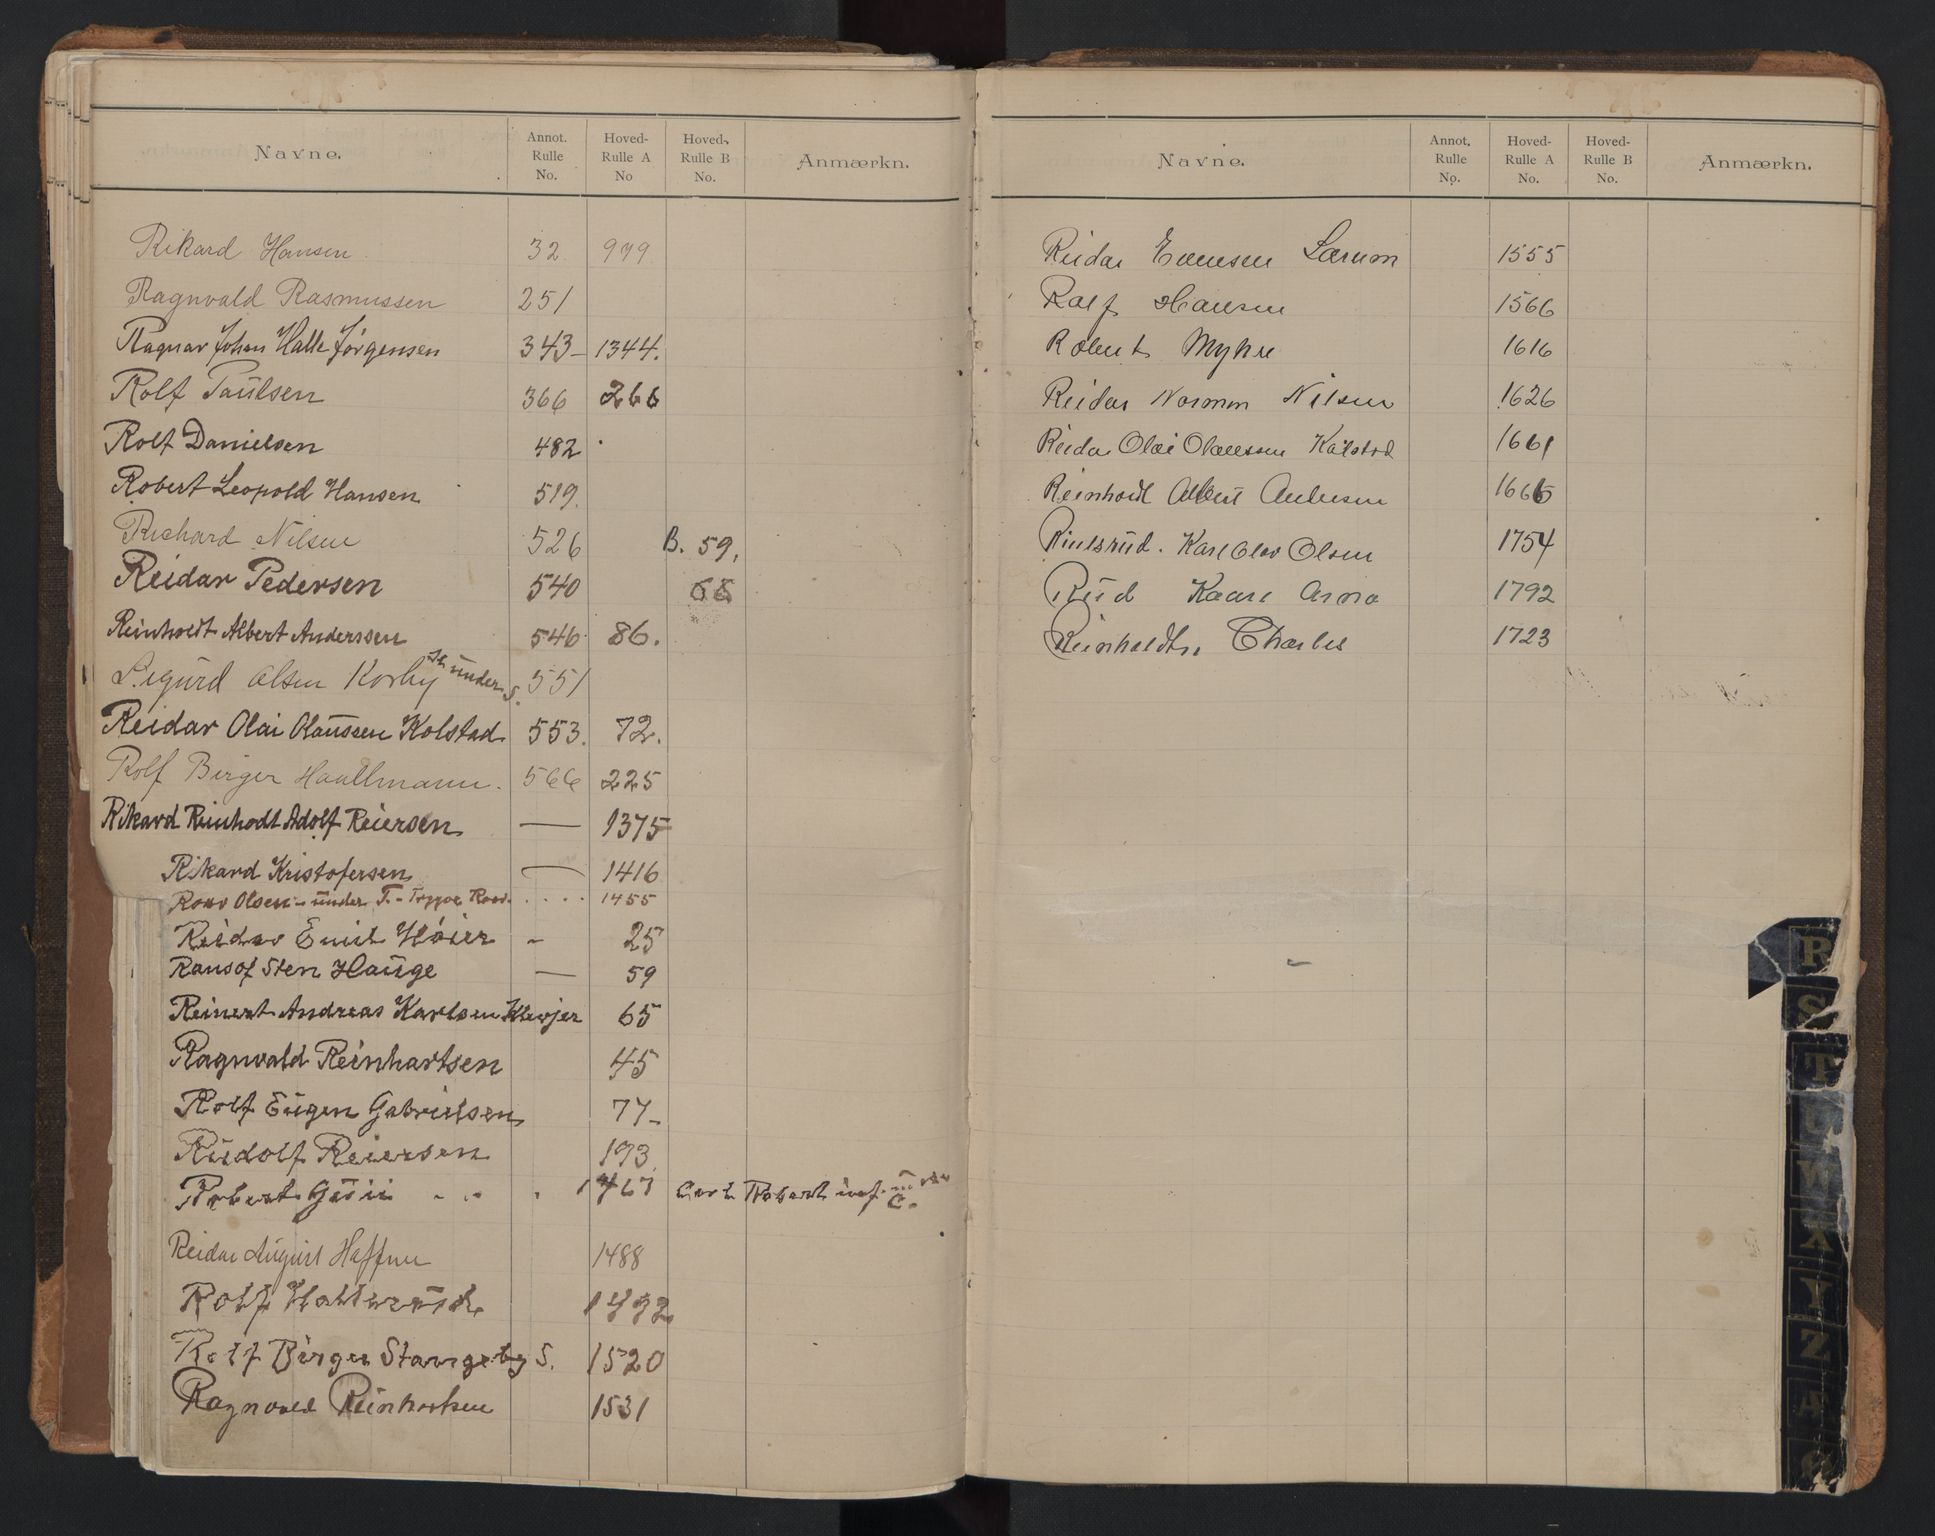 Navne. Annot. Rulle No. Hoved- Rulle A No Hoved- Rulle B No. Anmærkn.
Rikard Hansen 32 979
Ragnvald Rasmussen 251
Ragnar Johan Halle Jørgensen 343- 1344.
Rolf Paulsen 366 266
Rolf Danielsen 482
Robert Leopold Hansen 519.
Richard Nilsen 526 B. 59.
Reidar Pedersen 540 68
Reinholdt Albert Anderssen 546 86.
Sigurd Olsen Korby under S. 551
Reidar Olai Olaussen Kolstad 553. 72.
Rolf Birger Haallmann. 566 225
Rikard Reinhodt Adolf Reiersen — 1375
Rikard Kristofersen — 1416
Olsen - under T. - Trygve 1455
Reidar Emil Høier - 25
Sten Hauge — 59
Reinert Andreas Karlsen 65
Ragnvald Reinhartsen 45
Rolf Eugen Gabrielsen 77-
Rudolf Reiersen 193
Robert 1467 Carl Robert under C.
Reidar August Haffner 1488
Rolf 1492
Rolf Birger Stangeby S. 1520
Ragnvald Reinhartsen 1531
Navne. Annot. Rulle No. Hoved- Rulle A No. Hoved- Rulle B No. Anmærkn.
Reidar Evensen Lørum 1555
Rolf Hansen 1566
Robert Myhre 1616
Reidar Normann Nilsen 1626
Reidar Olai Olaussen Kolstad 1661
Reinholdt Albert Andersen 1665
Karl Olav Olsen 1754
Rud Kaare Arno 1792
Charles 1723
R
S
T
U
W
X
Y
Z